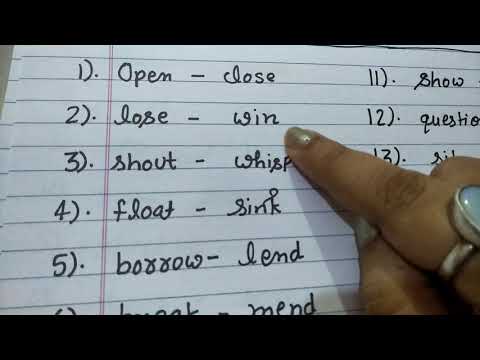 1). Open - close
2). lose - win
3). shout - whisp
4). float - sink
5). borrow - lend
- mend
11). show -
12). questio
13).